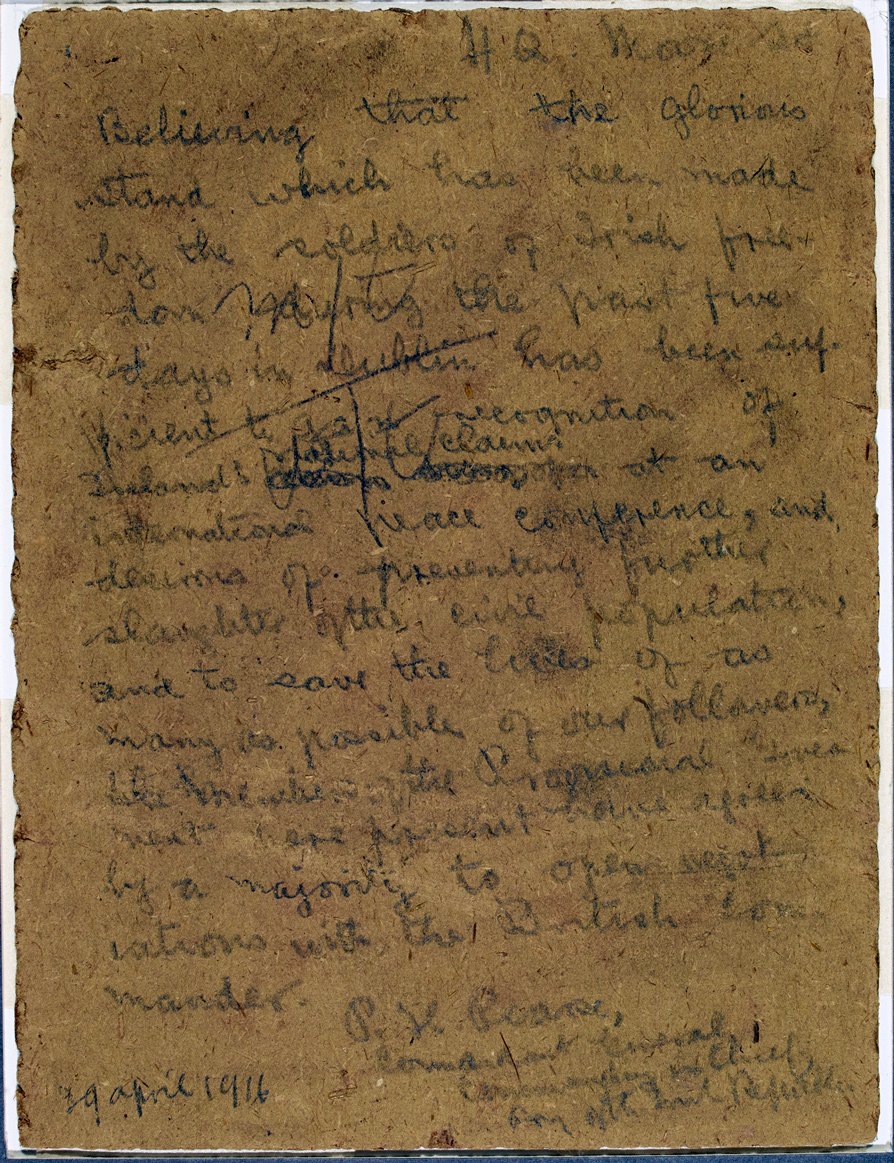 H Q. Moore St
Believing that the glorious
stand which has been made
by the soldiers of Irish free-
dom during the past five
days in Dublin has been suf-
ficient to recognition of
Ireland's national claims at an
international peace conference, and
desirous of preventing further
slaughter of the civil population,
and to save the lives of as
many as possible of our followers,
the members of the Provisional Govern
ment here present have agreed
by a majority to open negot
iations with the British Com
mander.
P. H. Pearse,
Commandant General,
Commanding in Chief,
Army of the Irish Republic
29 April 1916